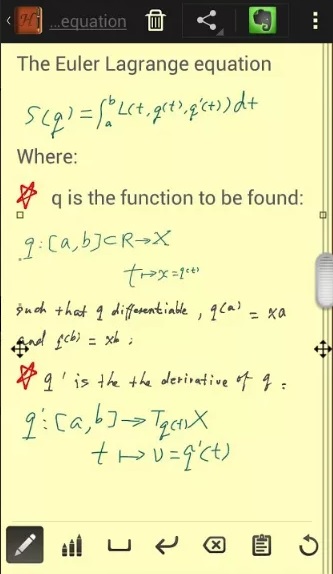 ...equation
The Euler Lagrange equation
S(q) = ∫ₐᵇ L(t, q(t), q'(t)) dt
Where:
q is the function to be found:
q: [a, b] ⊂ R → X
t ↦ x = q(t)
such that q differentiable, q(a) = xa
and q(b) = xb ;
q' is the the derivative of q :
q': [a, b] → T_{q(t)}X
t ↦ v = q'(t)